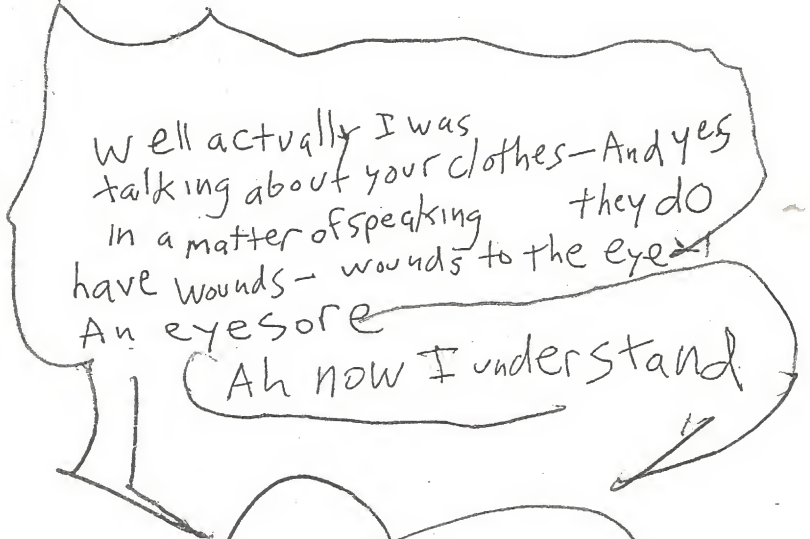 Well actually I was
talking about your clothes-And yes
in a matter of speaking they do
have wounds- wounds to the eye-
An eyesore
Ah now I understand